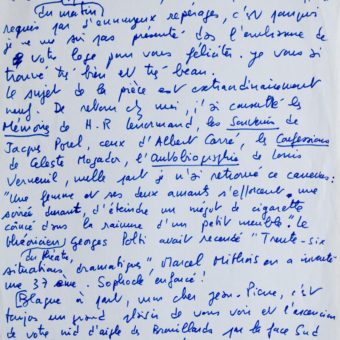 du matin
requis par d'ennuyeux repérages, c'est pourquoi
je ne me suis pas présenté dans l'embrasure de
votre loge pour vous féliciter. Je vous ai
trouvé très bien et très beau.
Le sujet de la pièce est extraordinairement
neuf. De retour chez moi, j'ai consulté les
Mémoires de H.R Lenormand, les Souvenirs de
Jacques Porel, ceux d'Albert Carré, les Confessions
de Céleste Mogador, l'Autobiographie de Louis
Verneuil, nulle part je n'ai retrouvé ce canevas :
"Une femme et ses deux amants s'efforcent, une
soirée durant, d'éteindre un mégot de cigarette
coincé dans la rainure d'un petit meuble". Le
théoricien Georges Polti avait recensé "Trente-six
du théâtre,
situations dramatiques", Marcel Mithois en a inventé
une 37ème. Sophocle enfoncé !
Blague à part, mon cher Jean-Pierre, c'est
toujours un grand plaisir de vous voir et l'ascension
de votre nid d'aigle de Brouillards par la face Sud